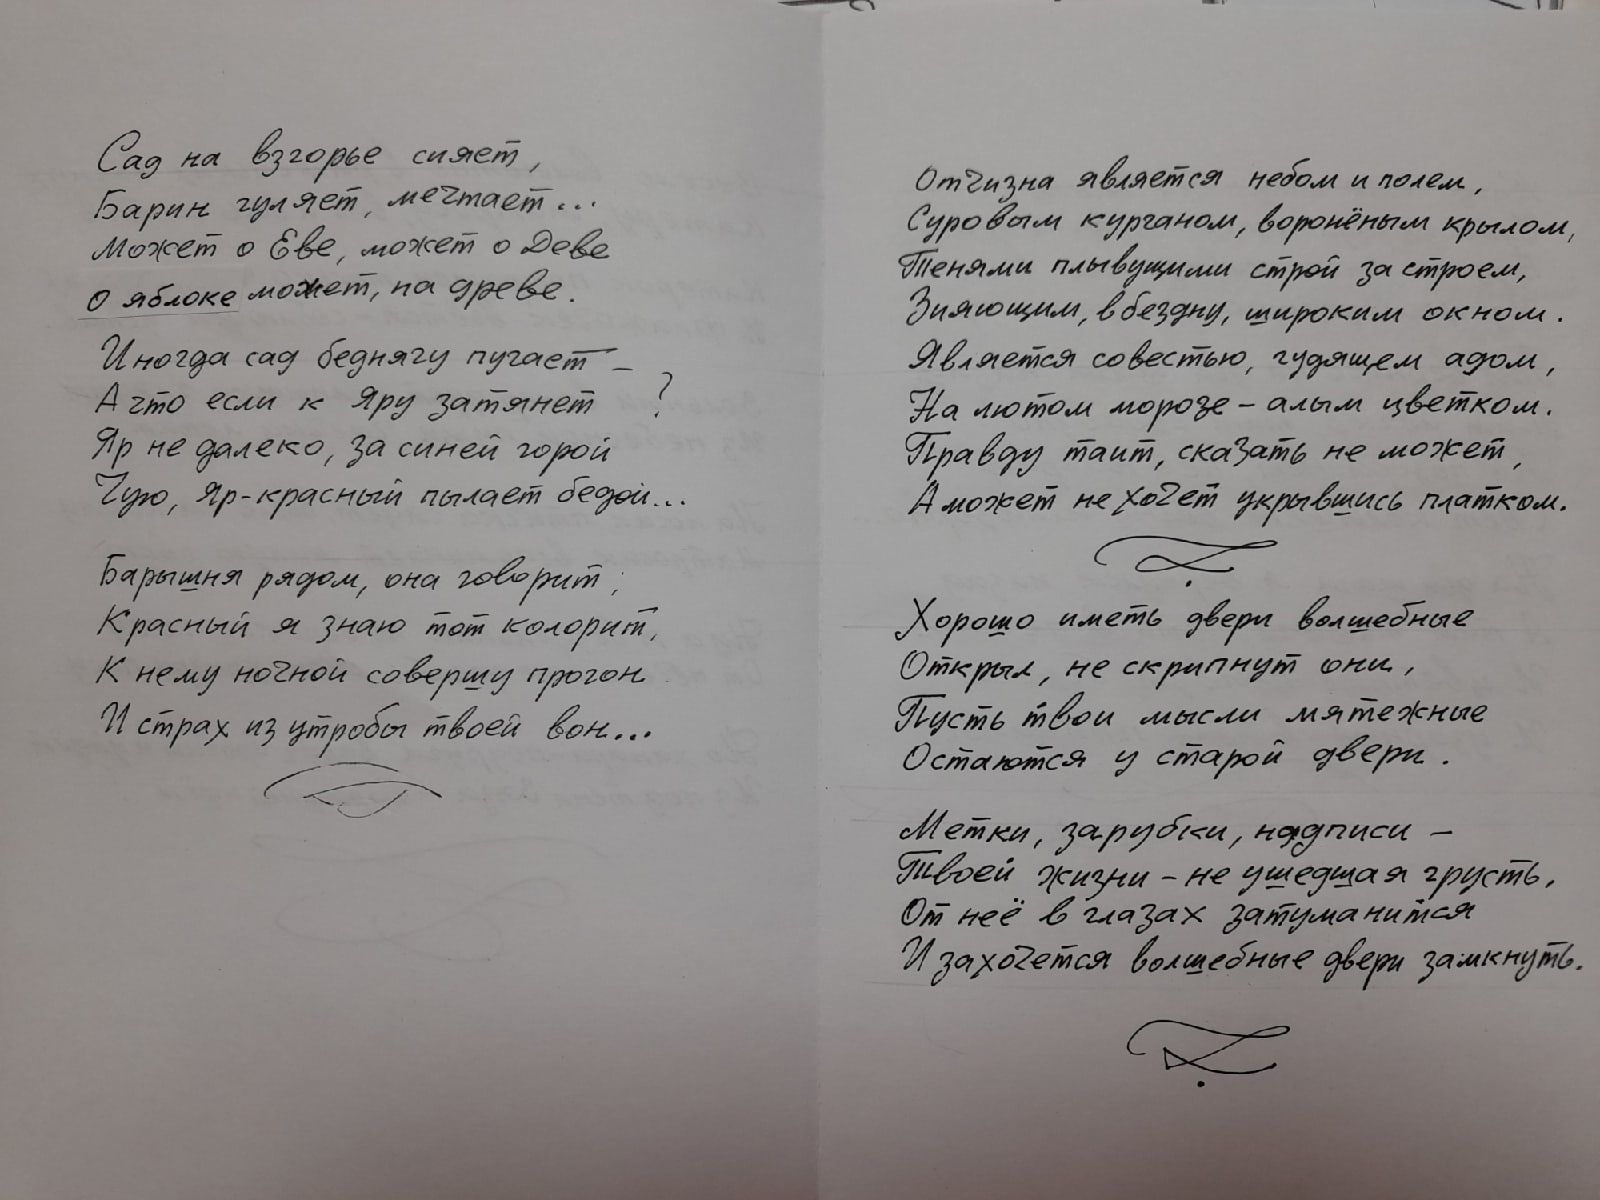 Сад на взгорье сияет,
Барин гуляет, мечтает...
Может о Еве, может о Деве
О яблоке может, на древе.
Иногда сад беднягу пугает –
А что если к Яру затянет ?
Яр не далеко, за синей горой
Чую, Яр-красный пылает бедой...
Барышня рядом, она говорит;
Красный я знаю тот колорит,
К нему ночной совершу прогон
И страх из утробы твоей вон...
Отчизна является небом и полем,
Суровым курганом, воронёным крылом,
Тенями плывущими строй за строем,
Зияющим, в бездну, широким окном.
Является совестью, гудящем адом,
На лютом морозе – алым цветком.
Правду таит, сказать не может,
А может не хочет укрывшись платком.
Хорошо иметь двери волшебные
Открыл, не скрипнут они,
Пусть твои мысли мятежные
Остаются у старой двери.
Метки, зарубки, надписи –
Твоей жизни – не ушедшая грусть,
От неё в глазах затуманится
И захочется волшебные двери замкнуть.